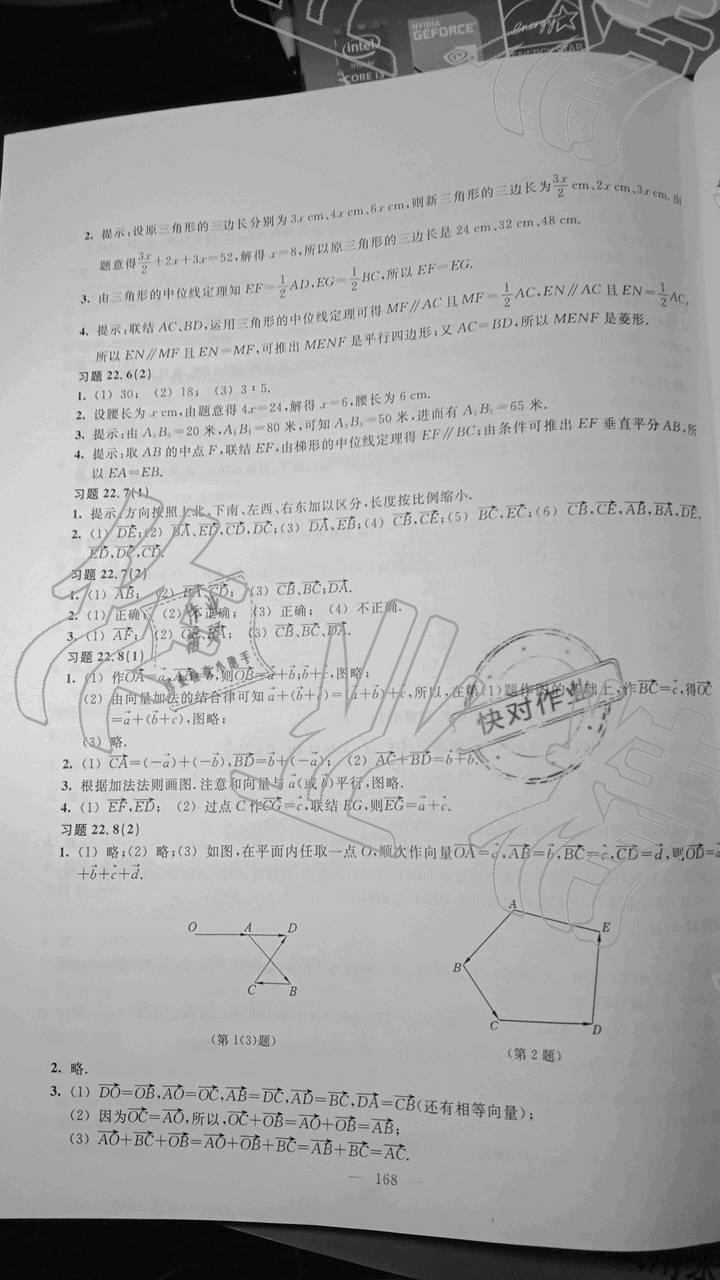 intel
inside
CORE i3
NVIDIA
GEFORCE
energy
ENERGY STAR
2. 提示:设原三角形的三边长分别为 3x cm、4x cm、6x cm,则新三角形的三边长为 3x/2 cm、2x cm、3x cm. 由
题意得 3x/2 +2x+3x=52,解得 x=8,所以原三角形的三边长是 24 cm、32 cm、48 cm.
3. 由三角形的中位线定理知 EF=1/2 AD,EG=1/2 BC,所以 EF=EG.
4. 提示:联结 AC、BD,运用三角形的中位线定理可得 MF∥AC 且 MF=1/2 AC,EN∥AC 且 EN=1/2 AC,
所以 EN∥MF 且 EN=MF,可推出 MENF 是平行四边形;又 AC=BD,所以 MENF 是菱形.
习题 22.6(2)
1. (1) 30; (2) 18; (3) 3∶5.
2. 设腰长为 x cm,由题意得 4x=24,解得 x=6,腰长为 6 cm.
3. 提示:由 A₅B₅=20 米,A₁B₁=80 米;可知 A₃B₃=50 米,进而有 A₂B₂=65 米.
4. 提示:取 AB 的中点 F,联结 EF,由梯形的中位线定理得 EF∥BC;由条件可推出 EF 垂直平分 AB,所
以 EA=EB.
习题 22.7(1)
1. 提示:方向按照上北、下南、左西、右东加以区分,长度按比例缩小.
2. (1) DE⃗; (2) BA⃗、ED⃗,CD⃗、DC⃗;(3) DA⃗,EB⃗;(4) CB⃗,CE⃗;(5) BC⃗,EC⃗;(6) CB⃗,CE⃗,AB⃗,BA⃗,DE⃗,
ED⃗,DC⃗,CD⃗.
习题 22.7(2)
1. (1) AB⃗; (2) BA⃗、CD⃗; (3) CB⃗、BC⃗;DA⃗.
2. (1) 正确; (2) 不正确; (3) 正确; (4) 不正确.
3. (1) AF⃗; (2) FA⃗; (3) CB⃗、BC⃗、DA⃗.
习题 22.8(1)
1. (1) 作OA⃗=a⃗,AB⃗=b⃗,则OB⃗=a⃗+b⃗;b⃗+c⃗,图略;
(2) 由向量加法的结合律可知 a⃗+(b⃗+c⃗)=(a⃗+b⃗)+c⃗,所以,在第(1)题作图的基础上,作BC⃗=c⃗,得OC⃗
=a⃗+(b⃗+c⃗),图略;
(3) 略.
2. (1) CA⃗=(−a⃗)+(−b⃗),BD⃗=b⃗+(−a⃗); (2) AC⃗+BD⃗=b⃗+b⃗.
3. 根据加法法则画图. 注意和向量与 a⃗(或 b⃗)平行,图略.
4. (1) EF⃗,ED⃗; (2) 过点 C 作CG⃗=c⃗,联结 EG,则EG⃗=a⃗+c⃗.
习题 22.8(2)
1. (1) 略;(2) 略;(3) 如图,在平面内任取一点 O,顺次作向量OA⃗=a⃗,AB⃗=b⃗,BC⃗=c⃗,CD⃗=d⃗,则OD⃗=a⃗
+b⃗+c⃗+d⃗.
O A D
C B
(第 1(3)题)
A
E
B
C D
(第 2 题)
2. 略.
3. (1) DO⃗=OB⃗,AO⃗=OC⃗,AB⃗=DC⃗,AD⃗=BC⃗,DA⃗=CB⃗(还有相等向量);
(2) 因为OC⃗=AO⃗,所以,OC⃗+OB⃗=AO⃗+OB⃗=AB⃗;
(3) AO⃗+BC⃗+OB⃗=AO⃗+OB⃗+BC⃗=AB⃗+BC⃗=AC⃗.
— 168
快对作业